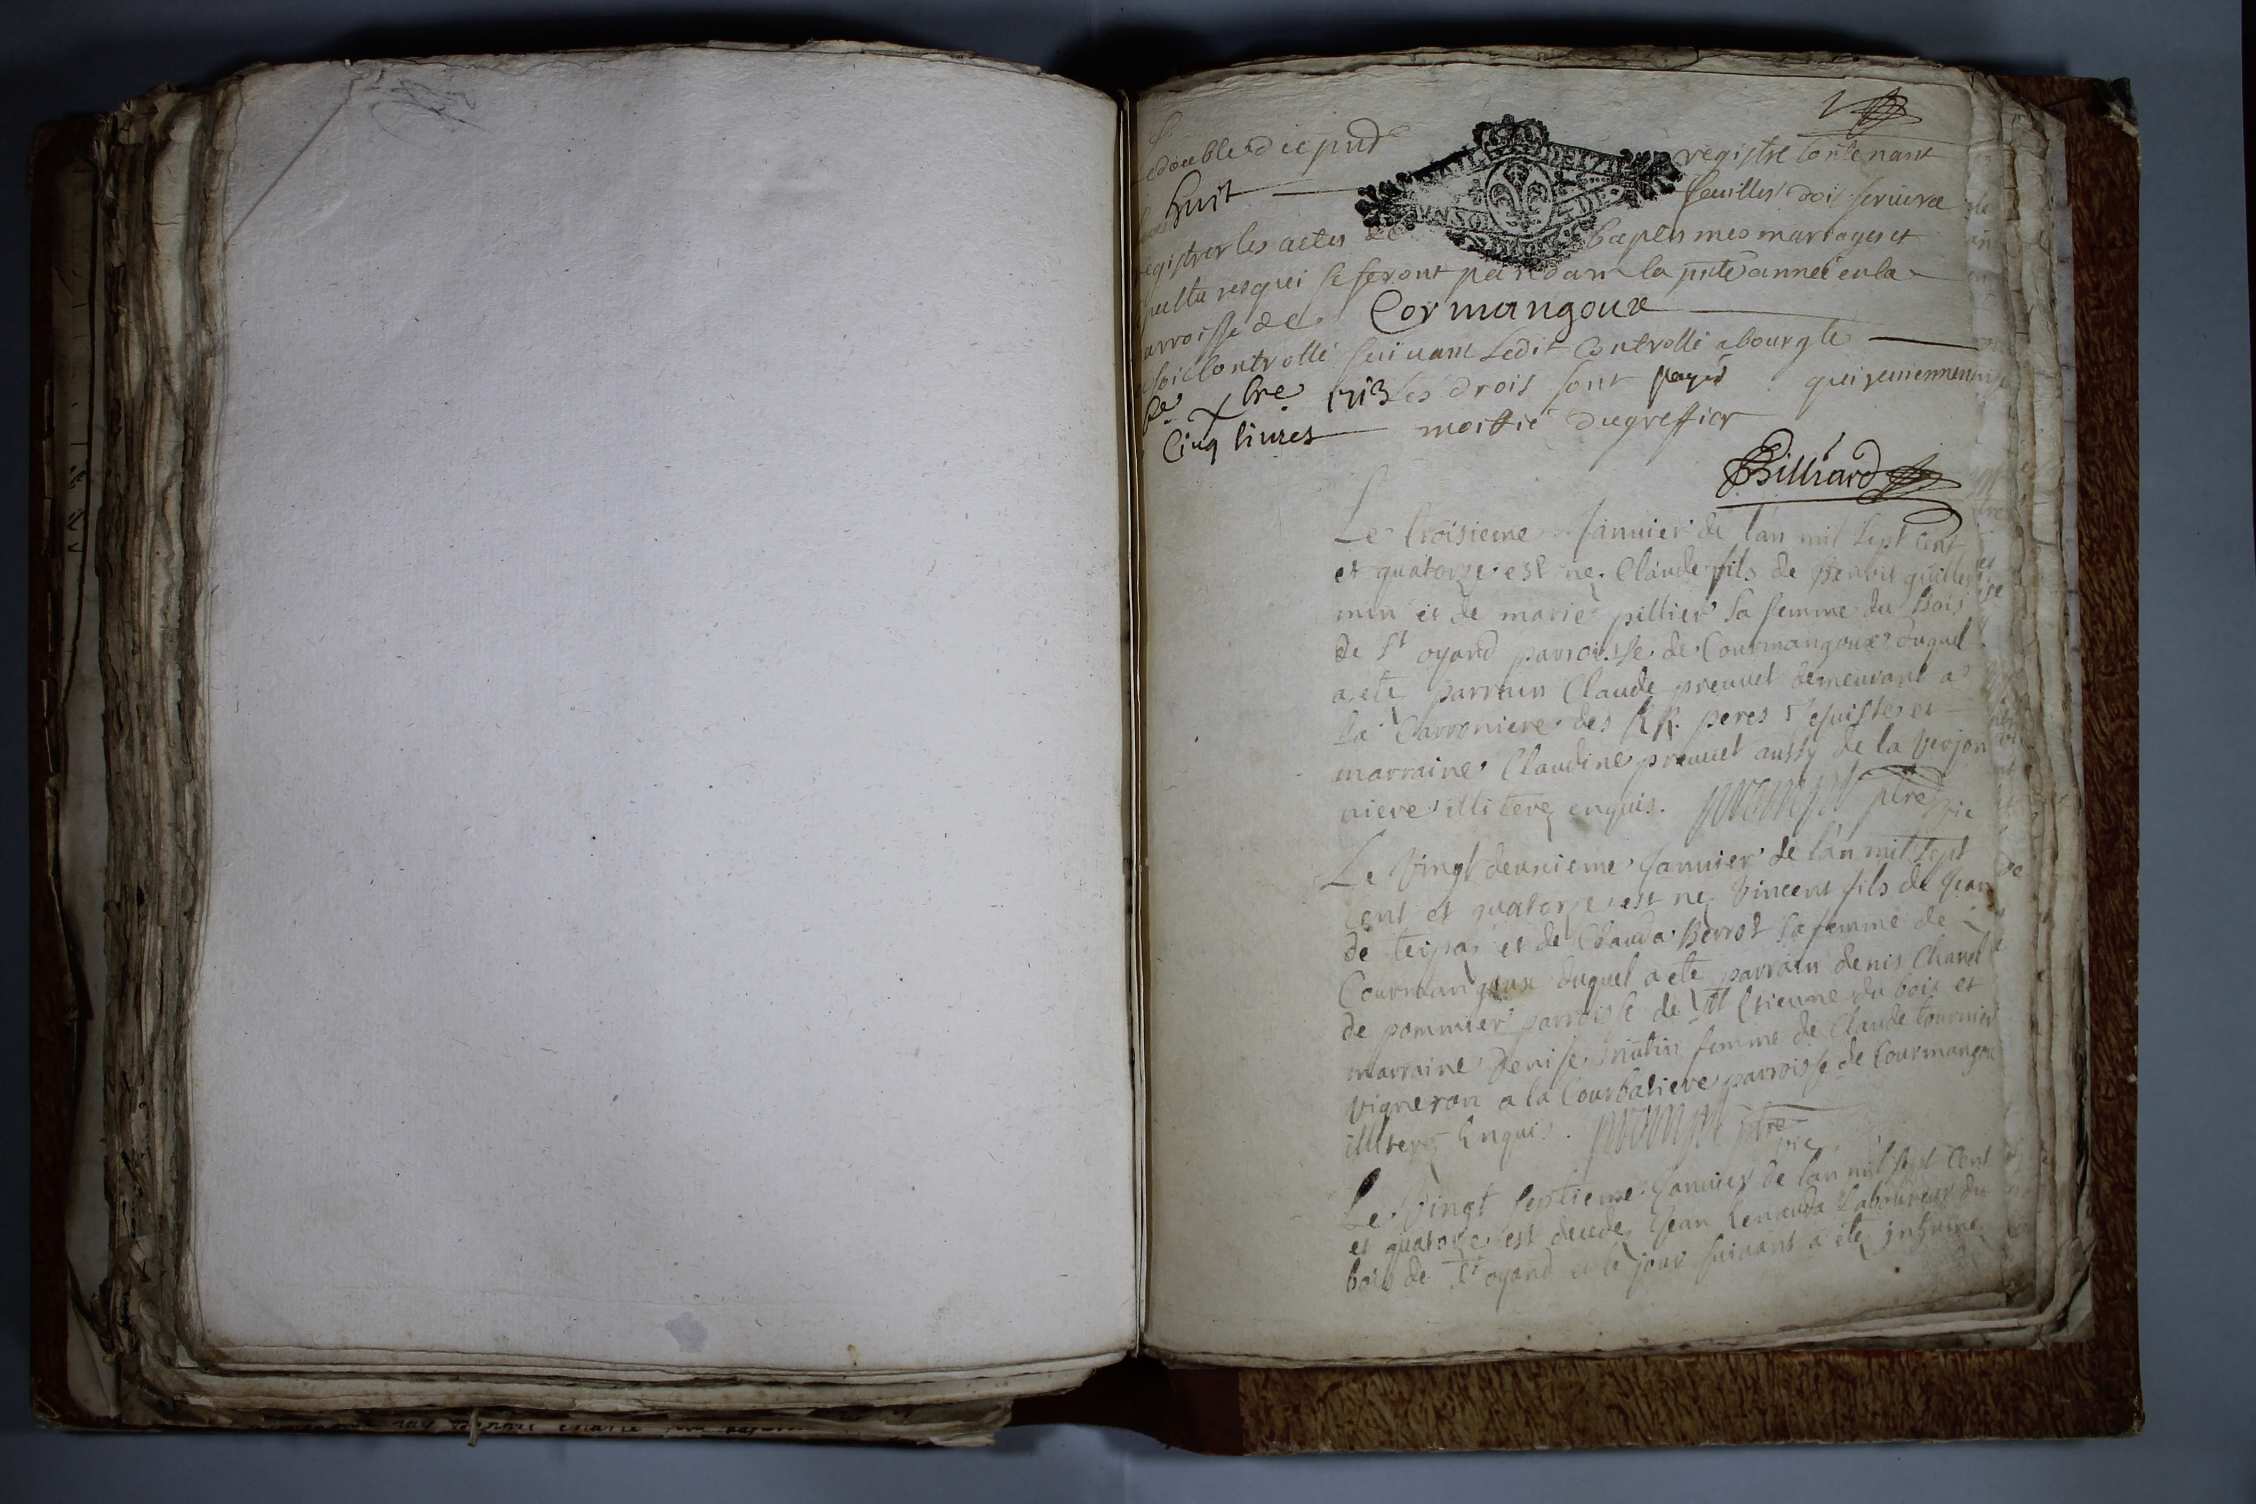 Le double du pnt registre contenant
huit feuilles doit servir a
registrer les actes de baptesmes mariages et
sepultures qui se feront pandant la pnte année en la
parroisse de Cormangoux
soit controllé suivant ledit controlle a bourg le
6e xbre 1713 les drois sont payés
Cinq livres moitié du greffier
Billiard
Le troisieme Janvier de lan mil sept cent
et quatorze est ne Claude fils de guiller
min et de marie pillier sa femme du bois
de St oyand parroisse de Courmangoux duquel
a ete parrain Claude preuvet demeurant a
la des RR. peres Jesuistes et
marraine Claudine preuvet aussy de la verjon
niere illiterez enquis. ptre
vic
Le Vingt deuxieme Janvier de lan mil sept
cent et quatorze est ne Vincent fils de Jean
de et de Clauda sa femme de
Courmangoux duquel a ete parrain denis Chanel
de pommier parroisse de St Etienne du bois et
marraine denise femme de Claude tournier
vigneron a la Courbatiere parroisse de Courmangoux
illiterez Enquis. ptre
vic
Le Vingt septieme Janvier de lan mil sept cent
et quatorze est decede Jean Renauda Laboureur du
bois de St oyand et le jour suivant a ete inhumé